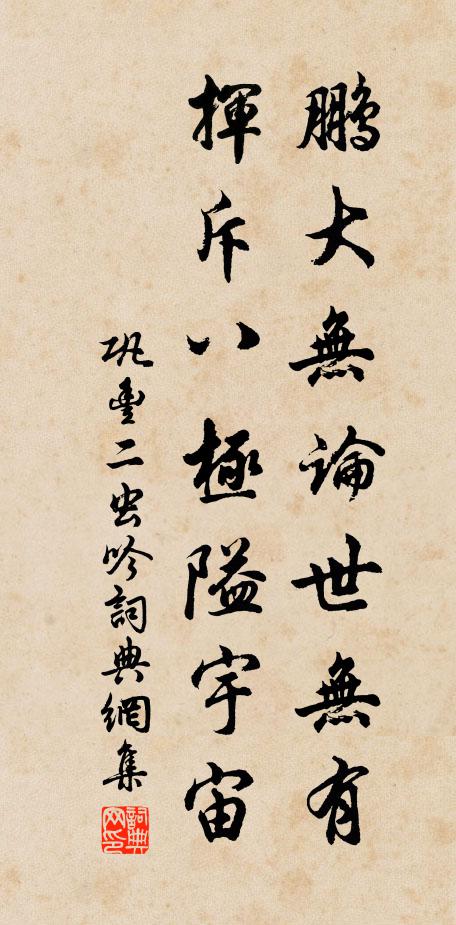 鵬大無論世無有
揮斥八極隘宇宙
巩豐二虫吟詞典網集
詞典网印